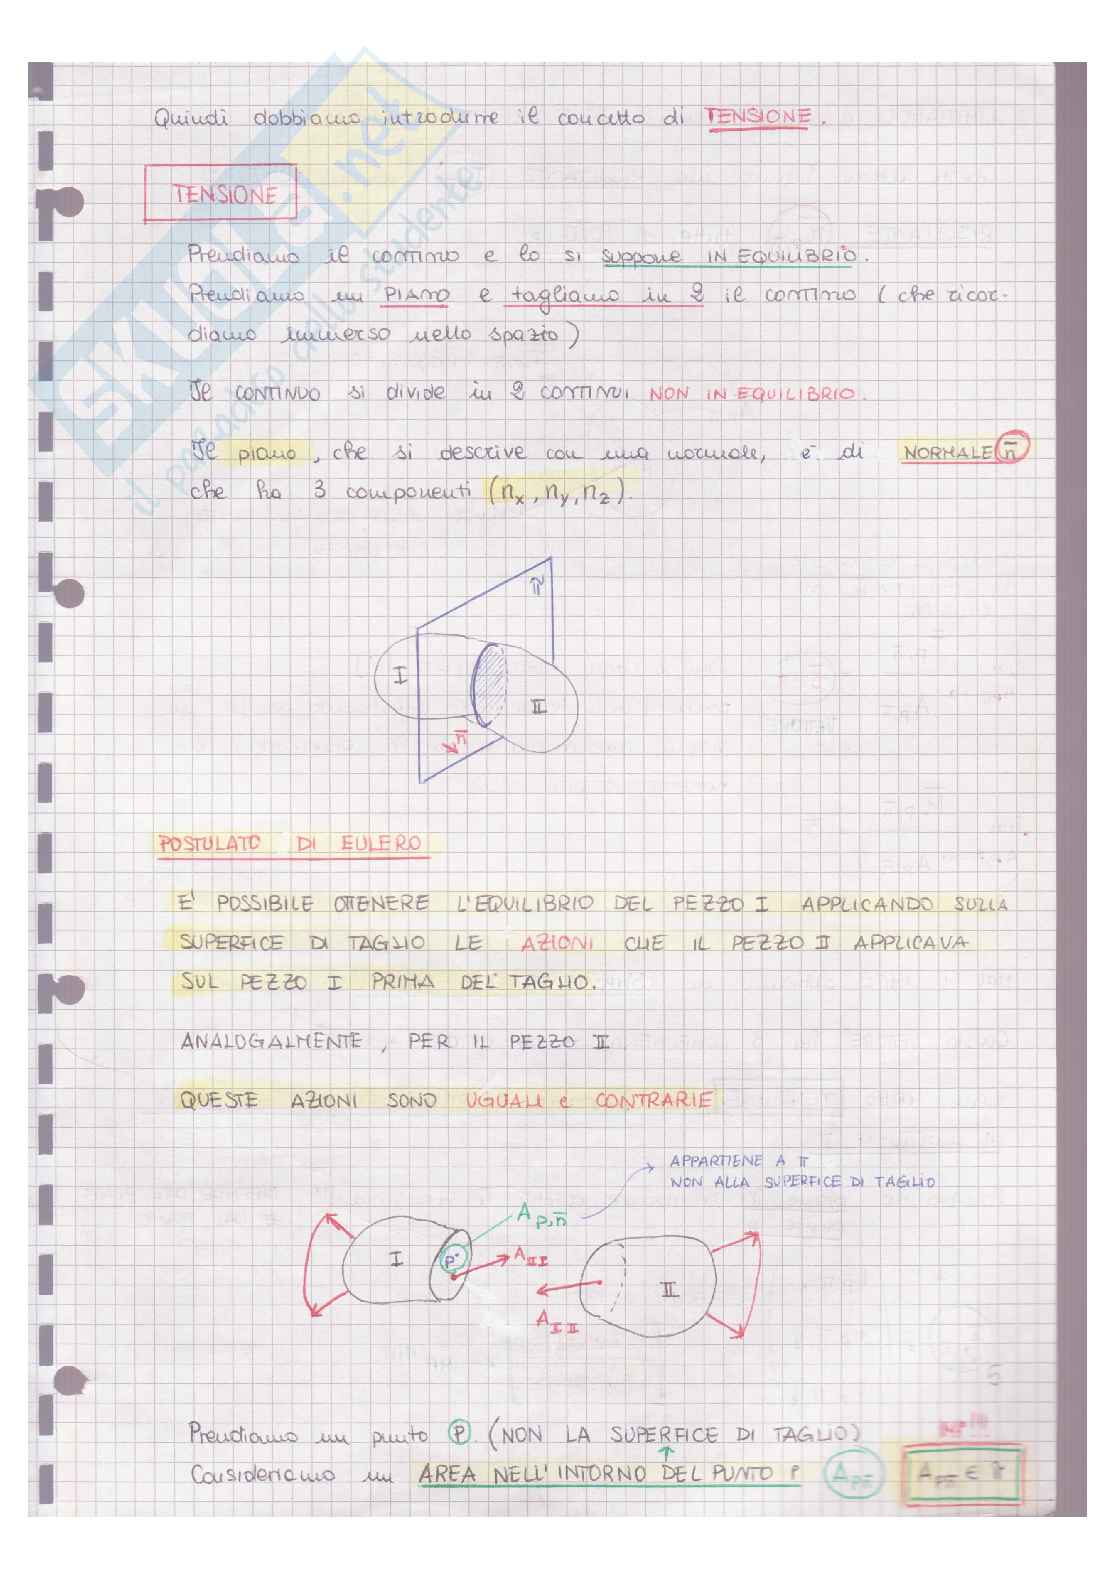 Quindi dobbiamo introdurre il concetto di TENSIONE.
TENSIONE
Prendiamo il continuo e lo si suppone IN EQUILIBRIO.
Prendiamo un PIANO e tagliamo in 2 il continuo (che ricor-
diamo immerso nello spazio)
Il CONTINUO si divide in 2 CONTINUI NON IN EQUILIBRIO.
Il piano, che si descrive con una normale, è di NORMALE n̄
che ha 3 componenti (nx, ny, nz).
π
I
II
n̄
POSTULATO DI EULERO
E' POSSIBILE OTTENERE L'EQUILIBRIO DEL PEZZO I APPLICANDO SULLA
SUPERFICE DI TAGLIO LE AZIONI CHE IL PEZZO II APPLICAVA
SUL PEZZO I PRIMA DEL TAGLIO.
ANALOGALMENTE, PER IL PEZZO II
QUESTE AZIONI SONO UGUALI e CONTRARIE
APPARTIENE A π
NON ALLA SUPERFICE DI TAGLIO
A p,n̄
I
P
A II I
II
A I II
5
Prendiamo un punto P. (NON LA SUPERFICE DI TAGLIO)
Consideriamo un AREA NELL'INTORNO DEL PUNTO P A pn̄ A pn̄ ∈ π
SKUOLA.net
il paradiso dello studente